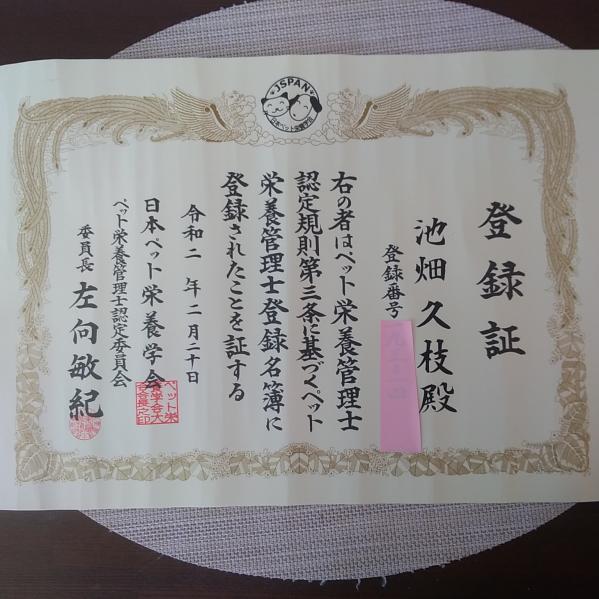 JSPAN
日本ペット栄養学会
登録証
池畑久枝殿
登録番号
右の者はペット栄養管理士
認定規則第三条に基づくペット
栄養管理士登録名簿に
登録されたことを証する
令和二年二月二十日
日本ペット栄養学会
ペット栄養管理士認定委員会
委員長 左向敏紀